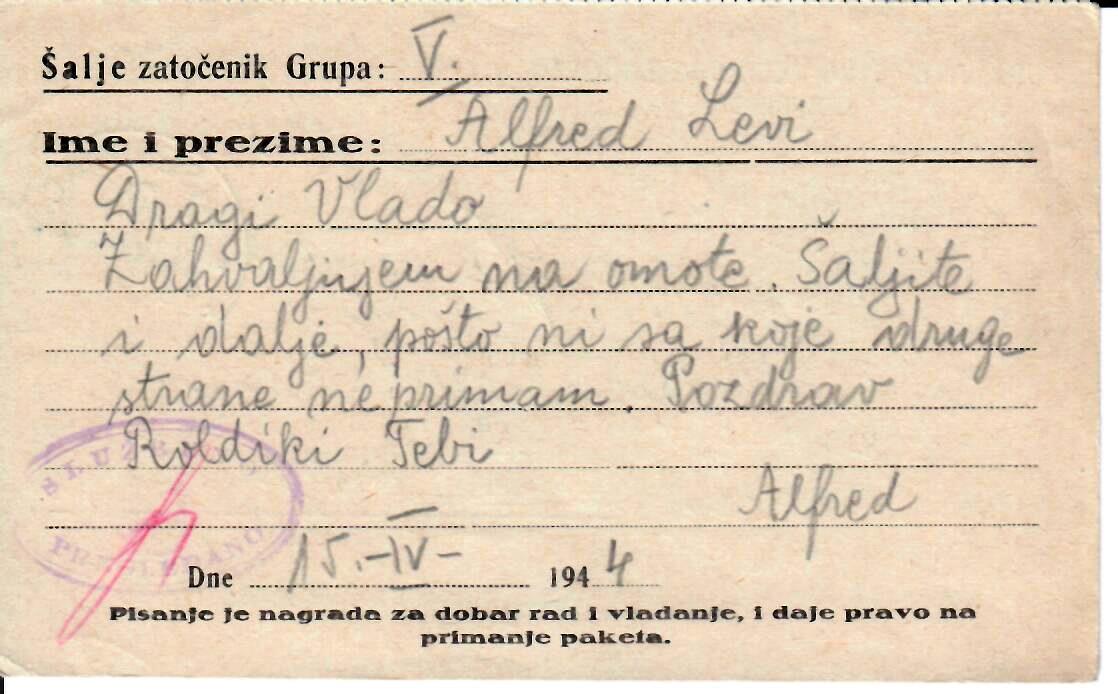 Šalje zatočenik Grupa: V.
Ime i prezime: Alfred Levi
Dragi Vlado
Zahvaljujem na omote. Šaljite
i dalje, pošto ni sa koje druge
strane ne primam. Pozdrav
Roldiki Tebi
Alfred
SLUŽBENO
PREGLEDANO
Dne 15.-IV- 1944
Pisanje je nagrada za dobar rad i vladanje, i daje pravo na
primanje paketa.